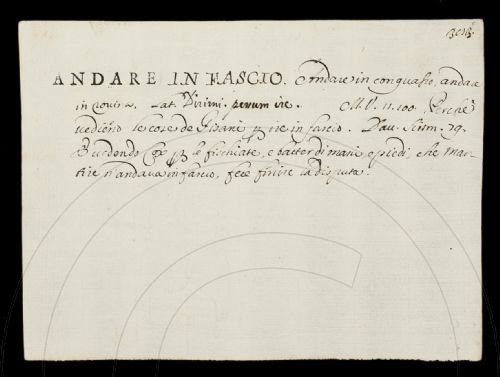 ANDARE IN FASCIO. Andare in conquasso, andare
in rovina. Lat. Dirimi. perum ire. M.V. 11.100. Perchè
vedieno le cose de Pisani p ire in fascio. Dav. Scism. 79.
Burdondo p le fischiate, e batter di mani, e piedi, che mar-
tire n'andava in fascio, fece finire la disputa.